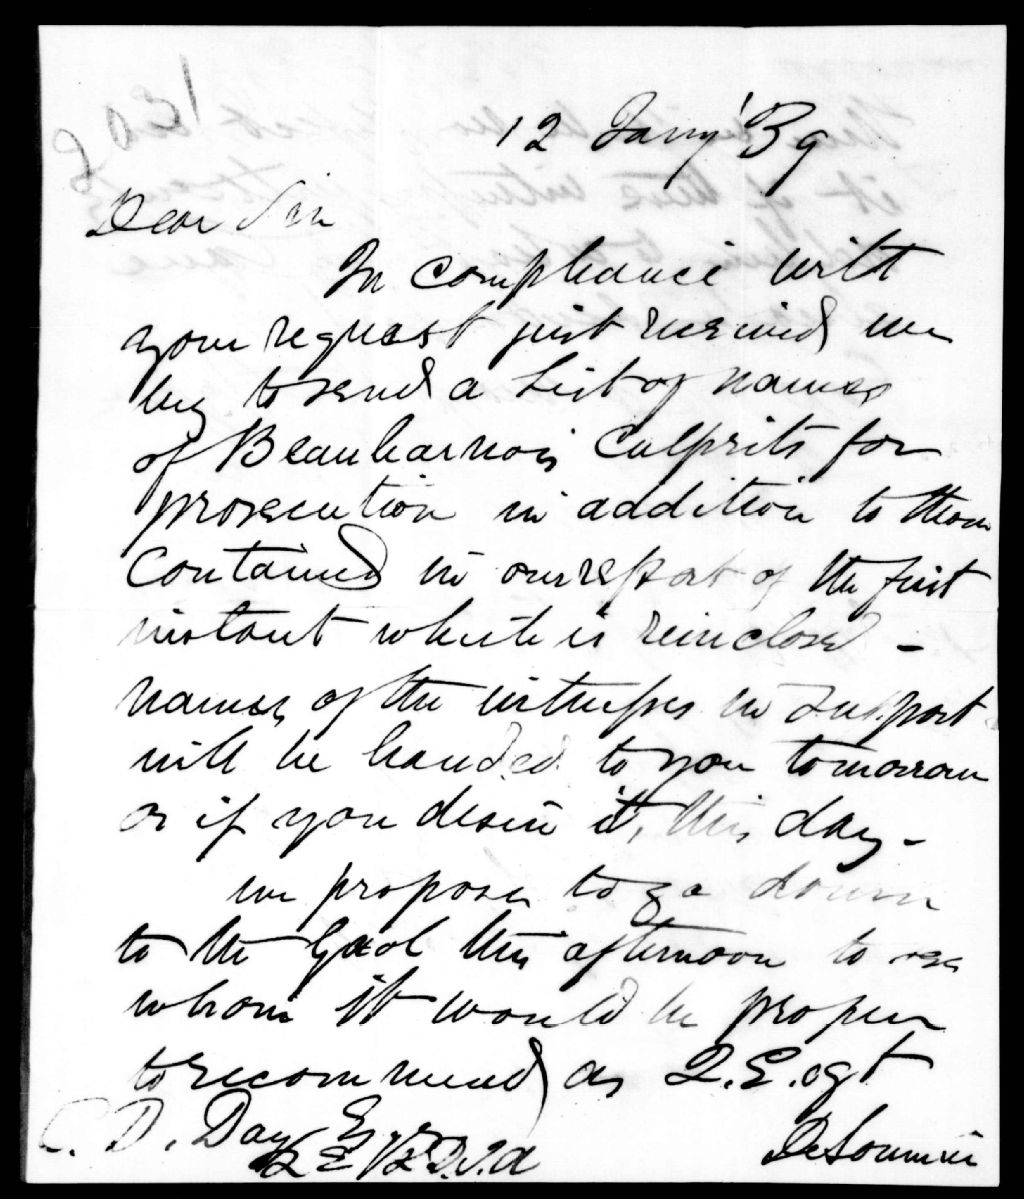 12 Jany '39
Dear Sir
In compliance with
your request just received we
beg to send a List of names
of Beauharnois Culprits for
prosecution in addition to those
Contained in our report of the first
instant which is reinclosed -
names of the witnesses in Support
will be handed to you tomorrow
or if you desire it, this day -
we propose to go down
to the Gaol this afternoon to see
whom it would be proper
to recommend as Q.E. agt
C. D. Day Esqr